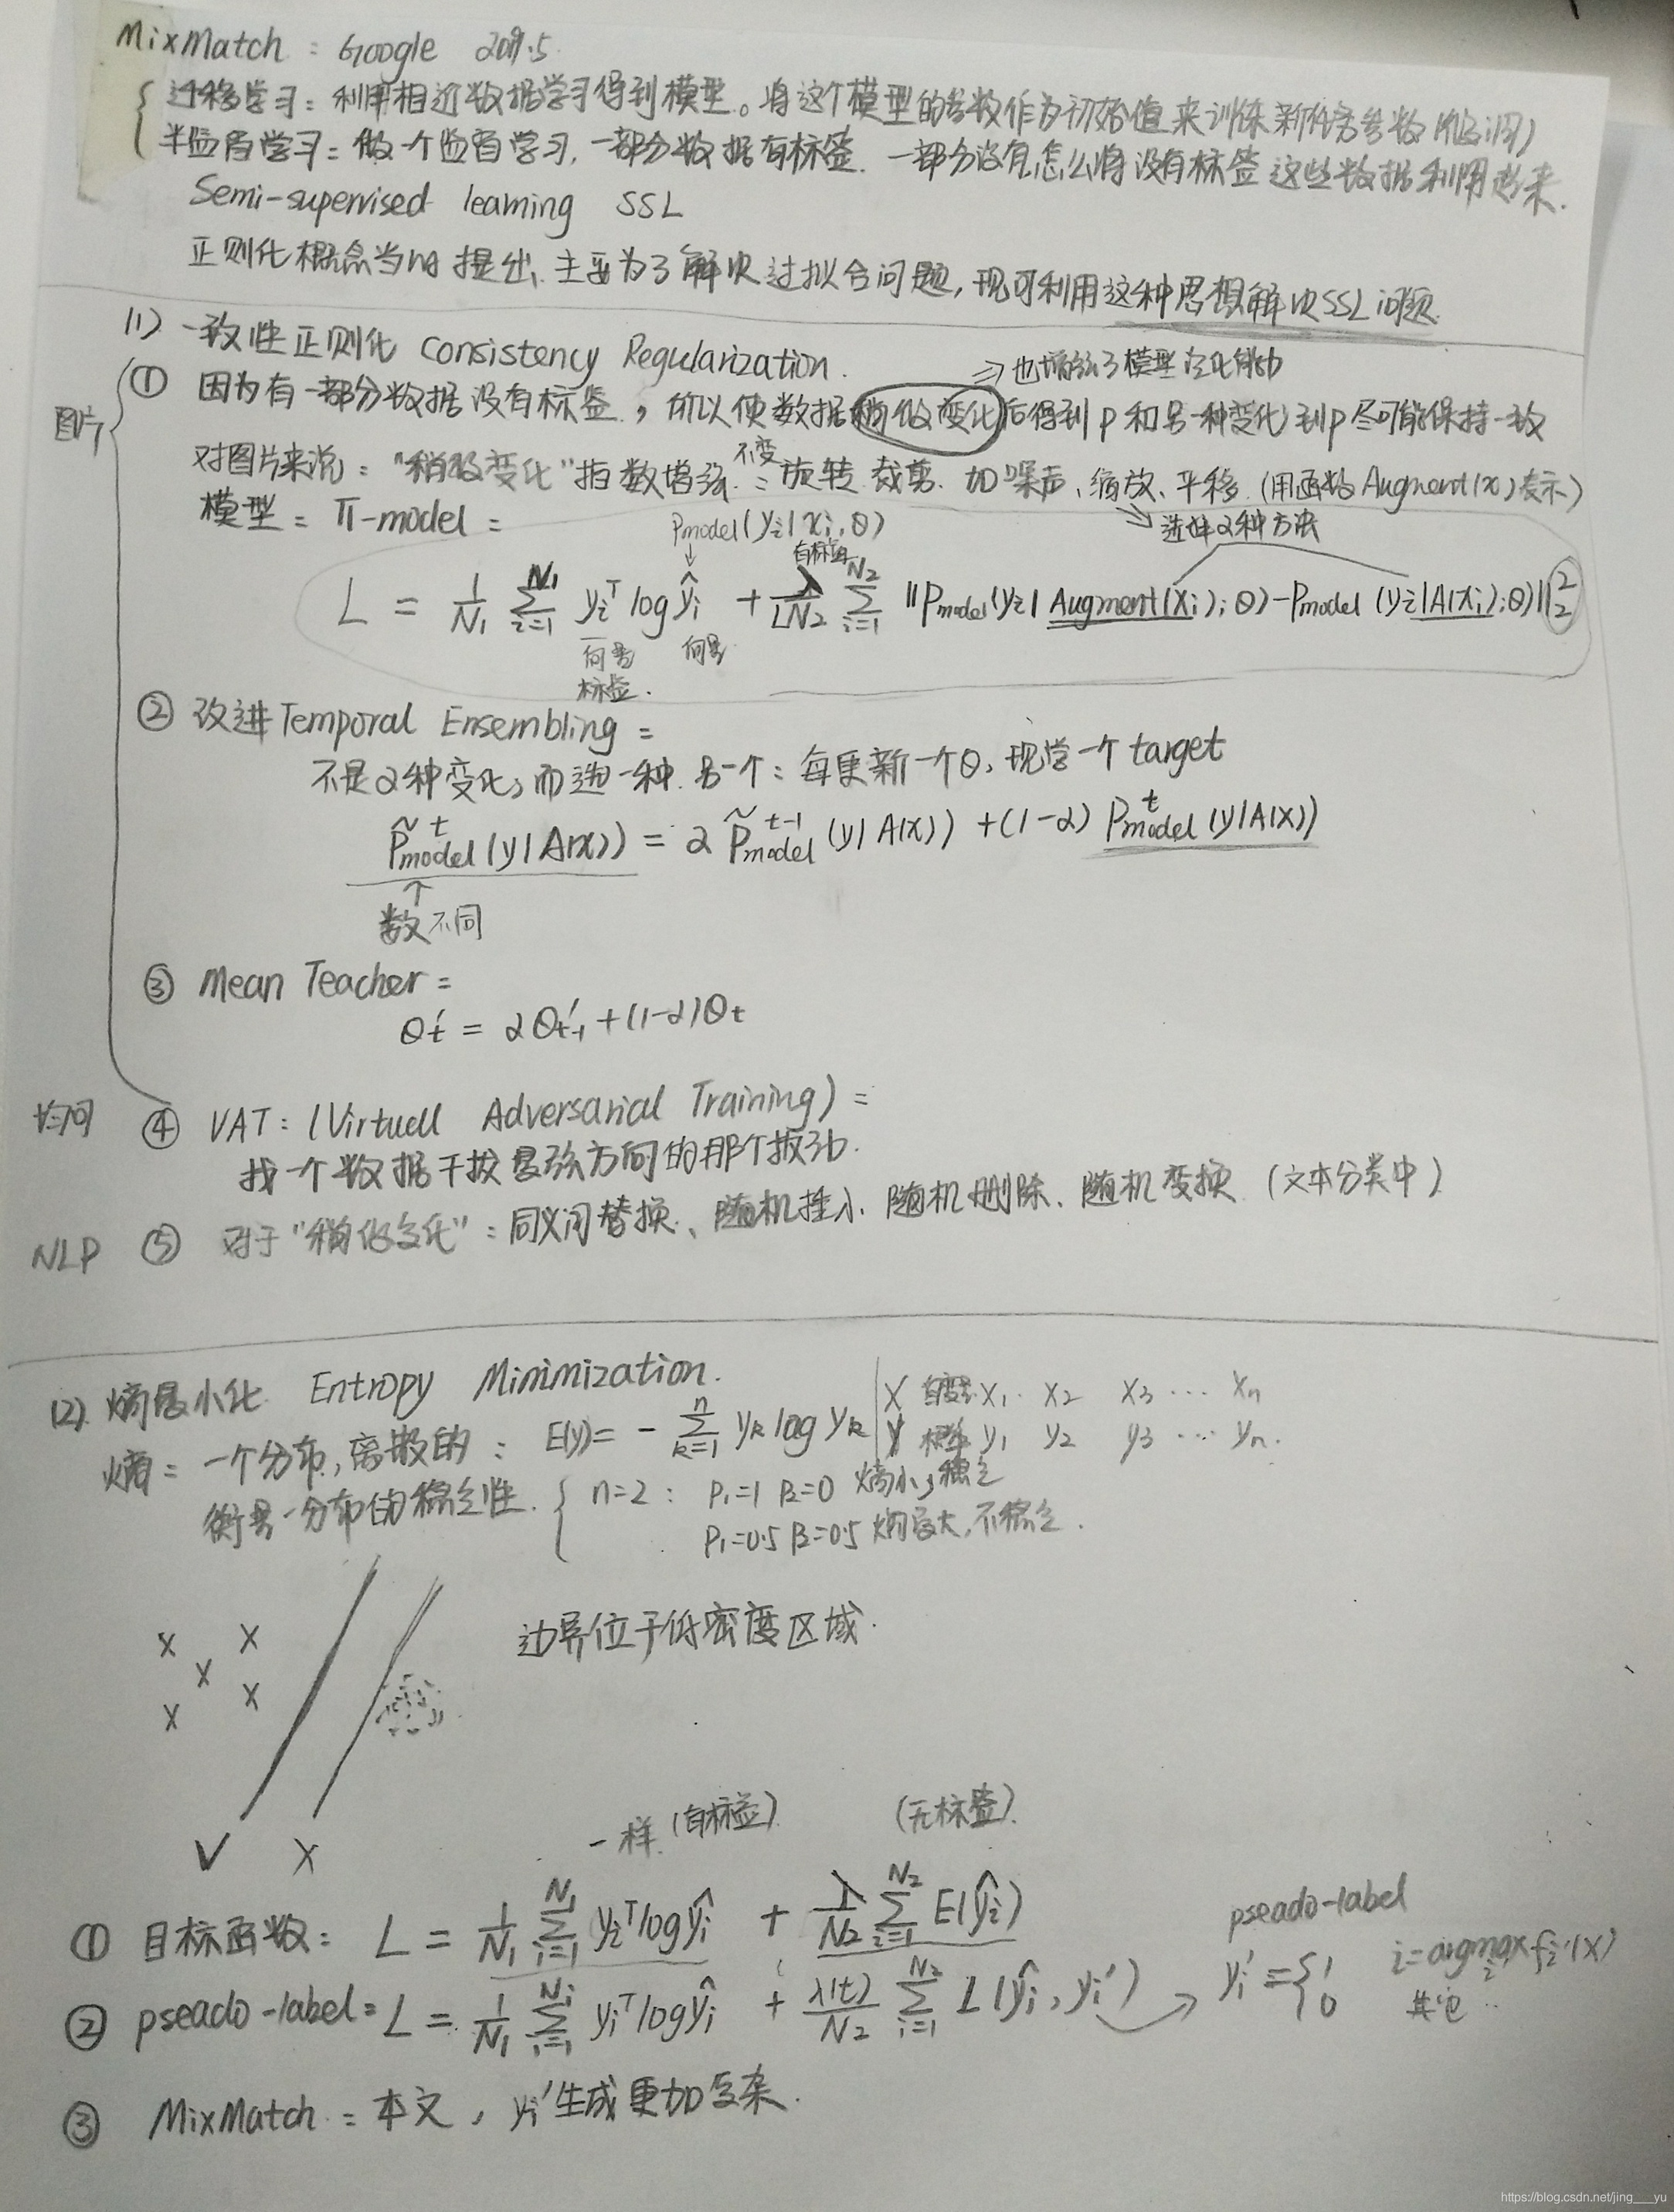 MixMatch: Google 2019.5
迁移学习: 利用相近数据学习得到模型。将这个模型的参数作为初始值来训练新任务参数
半监督学习: 做个监督学习, 一部分数据有标签. 一部分没有, 怎么将没有标签这些数据利用起来.
Semi-supervised learning SSL
正则化概念当时提出, 主要为了解决过拟合问题, 现可利用这种思想解决SSL问题.
(1) 一致性正则化 Consistency Regularization.
⇒也增强了模型泛化能力
图片
① 因为有一部分数据没有标签, 所以使数据稍微变化后得到p和另一种变化到p尽可能保持一致
对图片来说: "稍微变化"指数增强: 旋转 裁剪. 加噪声、缩放、平移. (用函数Augment(x)表示)
不变
选择2种方法
模型: Π-model:
Pmodel(yi|xi,θ)
有标签
L = 1/N1 Σ_{i=1}^{N1} yi^T log ŷi + λ/LN2 Σ_{i=1}^{N2} ||Pmodel(yi|Augment(xi);θ) - Pmodel(yi|A(xi);θ)||_2^2
向量 向量
标签.
② 改进Temporal Ensembling:
不是2种变化, 而选一种. 另一个: 每更新一个θ, 现学一个target
P̃^t_model(y|A(x)) = α P̃^{t-1}_model(y|A(x)) + (1-α) P^t_model(y|A(x))
↑
数不同
③ Mean Teacher:
θ't = αθ't-1 + (1-α)θt
④ VAT: (Virtuall Adversarial Training):
找一个数据干扰最强方向的那个扰动.
NLP ⑤ 对于"稍微变化": 同义词替换、随机插入、随机删除、随机变换. (文本分类中)
(2). 熵最小化. Entropy Minimization.
熵: 一个分布, 离散的: E(y) = - Σ_{k=1}^{n} yk log yk
X 自变: x1. x2 x3 ... xn
Y 概率 y1 y2 y3 ... yn.
衡量一分布的稳定性.
n=2: P1=1 P2=0 熵小, 稳定
P1=0.5 P2=0.5 熵最大, 不稳定.
X X
X
X X
边界位于低密度区域.
V X
一样 (有标签) (无标签).
① 目标函数: L = 1/N1 Σ_{i=1}^{N1} yi^T log ŷi + λ/N2 Σ_{i=1}^{N2} E(ŷi)
pseado-label
② pseado-label: L = 1/N1 Σ_{i=1}^{N1} yi^T log ŷi + λ(t)/N2 Σ_{i=1}^{N2} L(ŷi, yi') → yi' = { 1 i=argmax fi'(x)
0 其它
③ MixMatch: 本文, yi'生成更加复杂.
https://blog.csdn.net/jing___yu